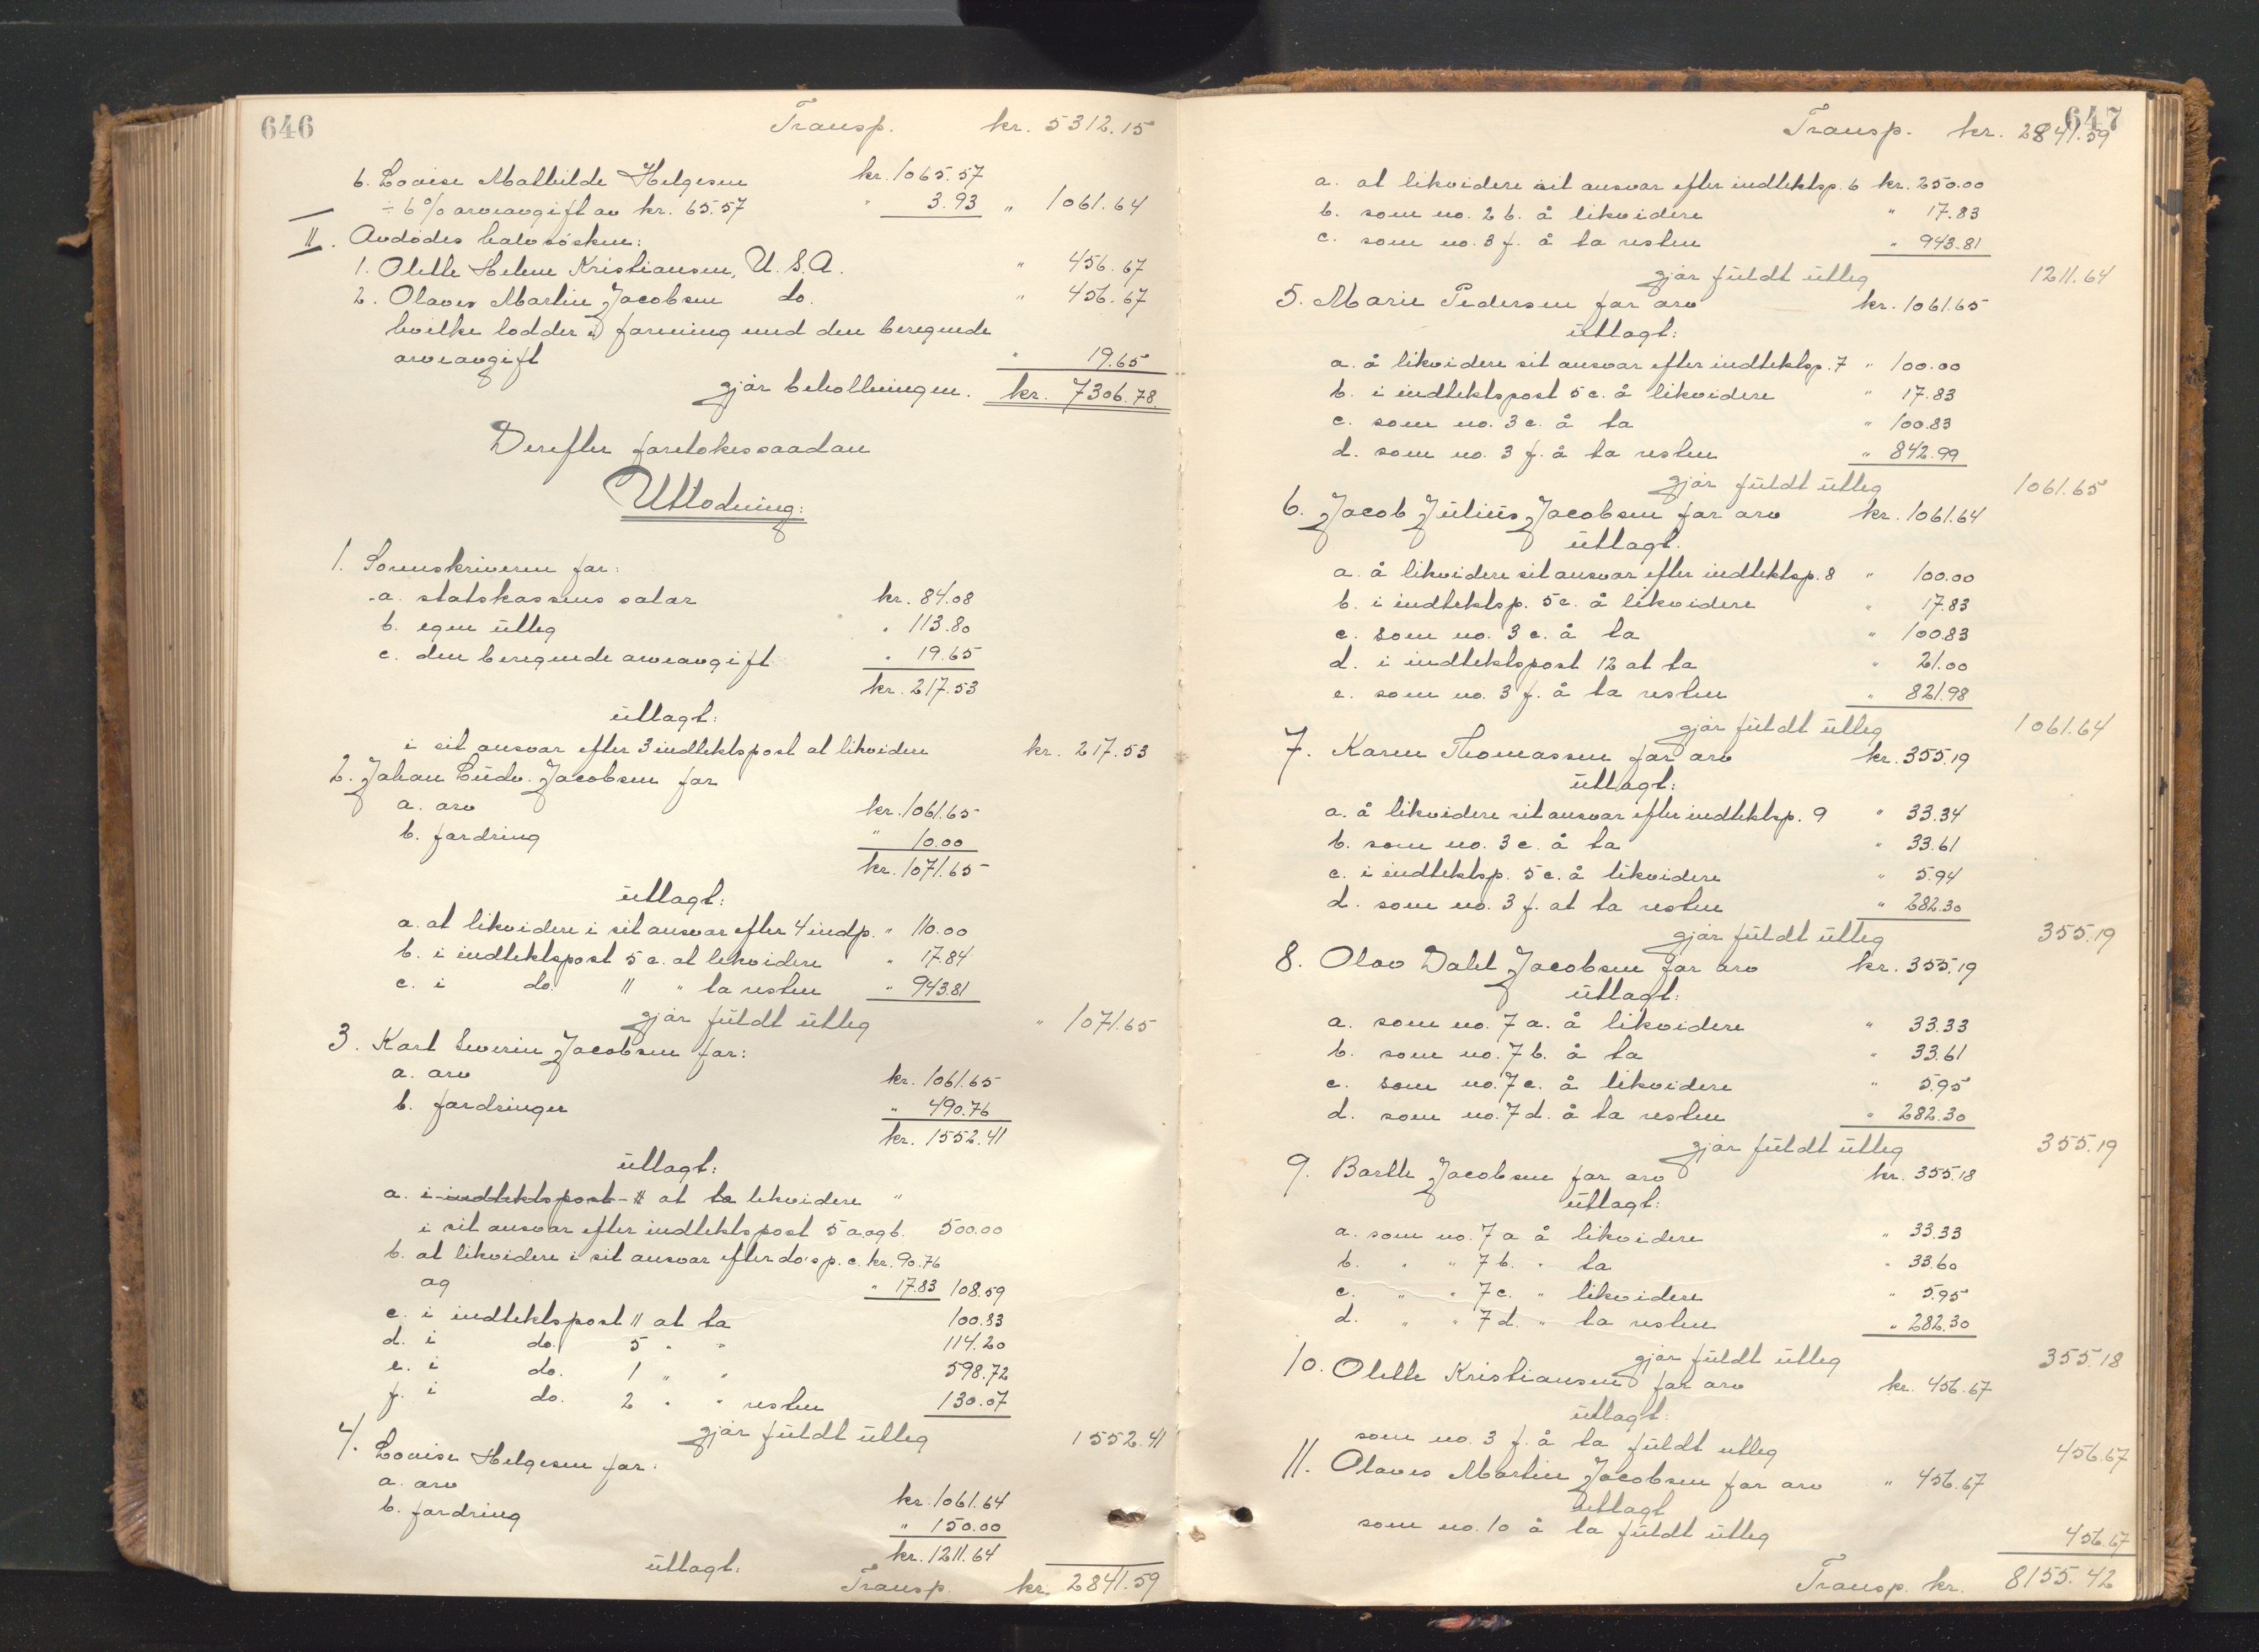 646
Transp. kr. 5312.15
6. Lovise Mathilde Helgesen kr. 1065.57
÷ 6% arveavgift av kr. 65.57 " 3.93 " 1061.64
II. Avdödes halvsösken:
1. Olette Helene Kristiansen, U.S.A. " 456.67
2. Olaves Martin Jacobsen do. " 456.67
hvilke lodder i forening med den beregnede
arveavgift " 19.65
gjör beholdningen. kr. 7306.78.
Derefter foretokes saadan
Utlodning:
1. Sorenskriveren for:
a. statskassens salær kr. 84.08
b. egne utleg " 113.80
c. den beregnede arveavgift " 19.65
kr. 217.53
utlagt:
i sit ansvar efter 3 indtektspost at likvidere kr. 217.53
2. Johan Ludv. Jacobsen for
a. arv kr. 1061.65
b. fordring " 10.00
kr. 1071.65
utlagt:
a. at likvidere i sit ansvar efter 4 indp. " 110.00
b. i indtektspost 5 c. at likvidere " 17.84
c. i do. 11 " ta resten " 943.81
gjör fuldt utleg " 1071.65
3. Karl Severin Jacobsen for:
a. arv kr. 1061.65
b. fordringer " 490.76
kr. 1552.41
utlagt:
a. i indtektspost 11 at ta likvidere "
i sit ansvar efter indtektspost 5 a og b. 500.00
b. at likvidere i sit ansvar efter do. s p. c. kr. 90.76
og " 17.83 108.59
c. i indtektspost 11 at ta 100.83
d. i do. 5 " " 114.20
e. i do. 1 " " 598.72
f. i do. 2 " " resten 130.07
gjör fuldt utleg 1552.41
4. Lovise Helgesen for:
a. arv kr. 1061.64
b. fordring " 150.00
kr. 1211.64
utlagt:
Transp. kr. 2841.59
647
Transp. kr. 2841.59
a. at likvidere sit ansvar efter indtektsp. 6 kr. 250.00
b. som no. 2 b. å likvidere " 17.83
c. som no. 3 f. å ta resten " 943.81
gjör fuldt utleg 1211.64
5. Marie Pedersen for arv kr. 1061.65
utlagt:
a. å likvidere sit ansvar efter indtektsp. 7 " 100.00
b. i indtektspost 5 c. å likvidere " 17.83
c. som no. 3 c. å ta " 100.83
d. som no. 3 f. å ta resten " 842.99
gjör fuldt utleg 1061.65
6. Jacob Julius Jacobsen for arv kr. 1061.64
utlagt.
a. å likvidere sit ansvar efter indtektsp. 8 " 100.00
b. i indtektsp. 5 c. å likvidere " 17.83
c. som no. 3 c. å ta " 100.83
d. i indtektspost 12 at ta " 21.00
e. som no. 3 f. å ta resten " 821.98
gjör fuldt utleg 1061.64
7. Karen Thomassen for arv kr. 355.19
utlagt:
a. å likvidere sit ansvar efter indtektsp. 9 " 33.34
b. som no. 3 c. å ta " 33.61
c. i indtektsp. 5 c. å likvidere " 5.94
d. som no. 3 f. at ta resten " 282.30
gjör fuldt utleg 355.19
8. Olav Dahl Jacobsen for arv kr. 355.19
utlagt:
a. som no. 7 a. å likvidere " 33.33
b. som no. 7 b. å ta " 33.61
c. som no. 7 c. å likvidere " 5.95
d. som no. 7 d. å ta resten " 282.30
gjör fuldt utleg 355.19
9. Bartle Jacobsen for arv kr. 355.18
utlagt:
a. som no. 7 a å likvidere " 33.33
b. " " 7 b. " ta " 33.60
c. " " 7 c. " likvidere " 5.95
d. " " 7 d. " ta resten " 282.30
gjör fuldt utleg 355.18
10. Olette Kristiansen for arv kr. 456.67
utlagt:
som no. 3 f. å ta fuldt utleg 456.67
11. Olaves Martin Jacobsen for arv " 456.67
utlagt
som no. 10 å ta fuldt utleg 456.67
Transp. kr. 8155.42